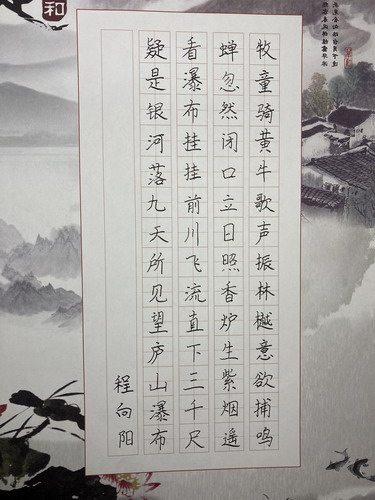 和
牧童骑黄牛歌声振林樾意欲捕鸣
蝉忽然闭口立日照香炉生紫烟遥
看瀑布挂挂前川飞流直下三千尺
疑是银河落九天所见望庐山瀑布
程向阳